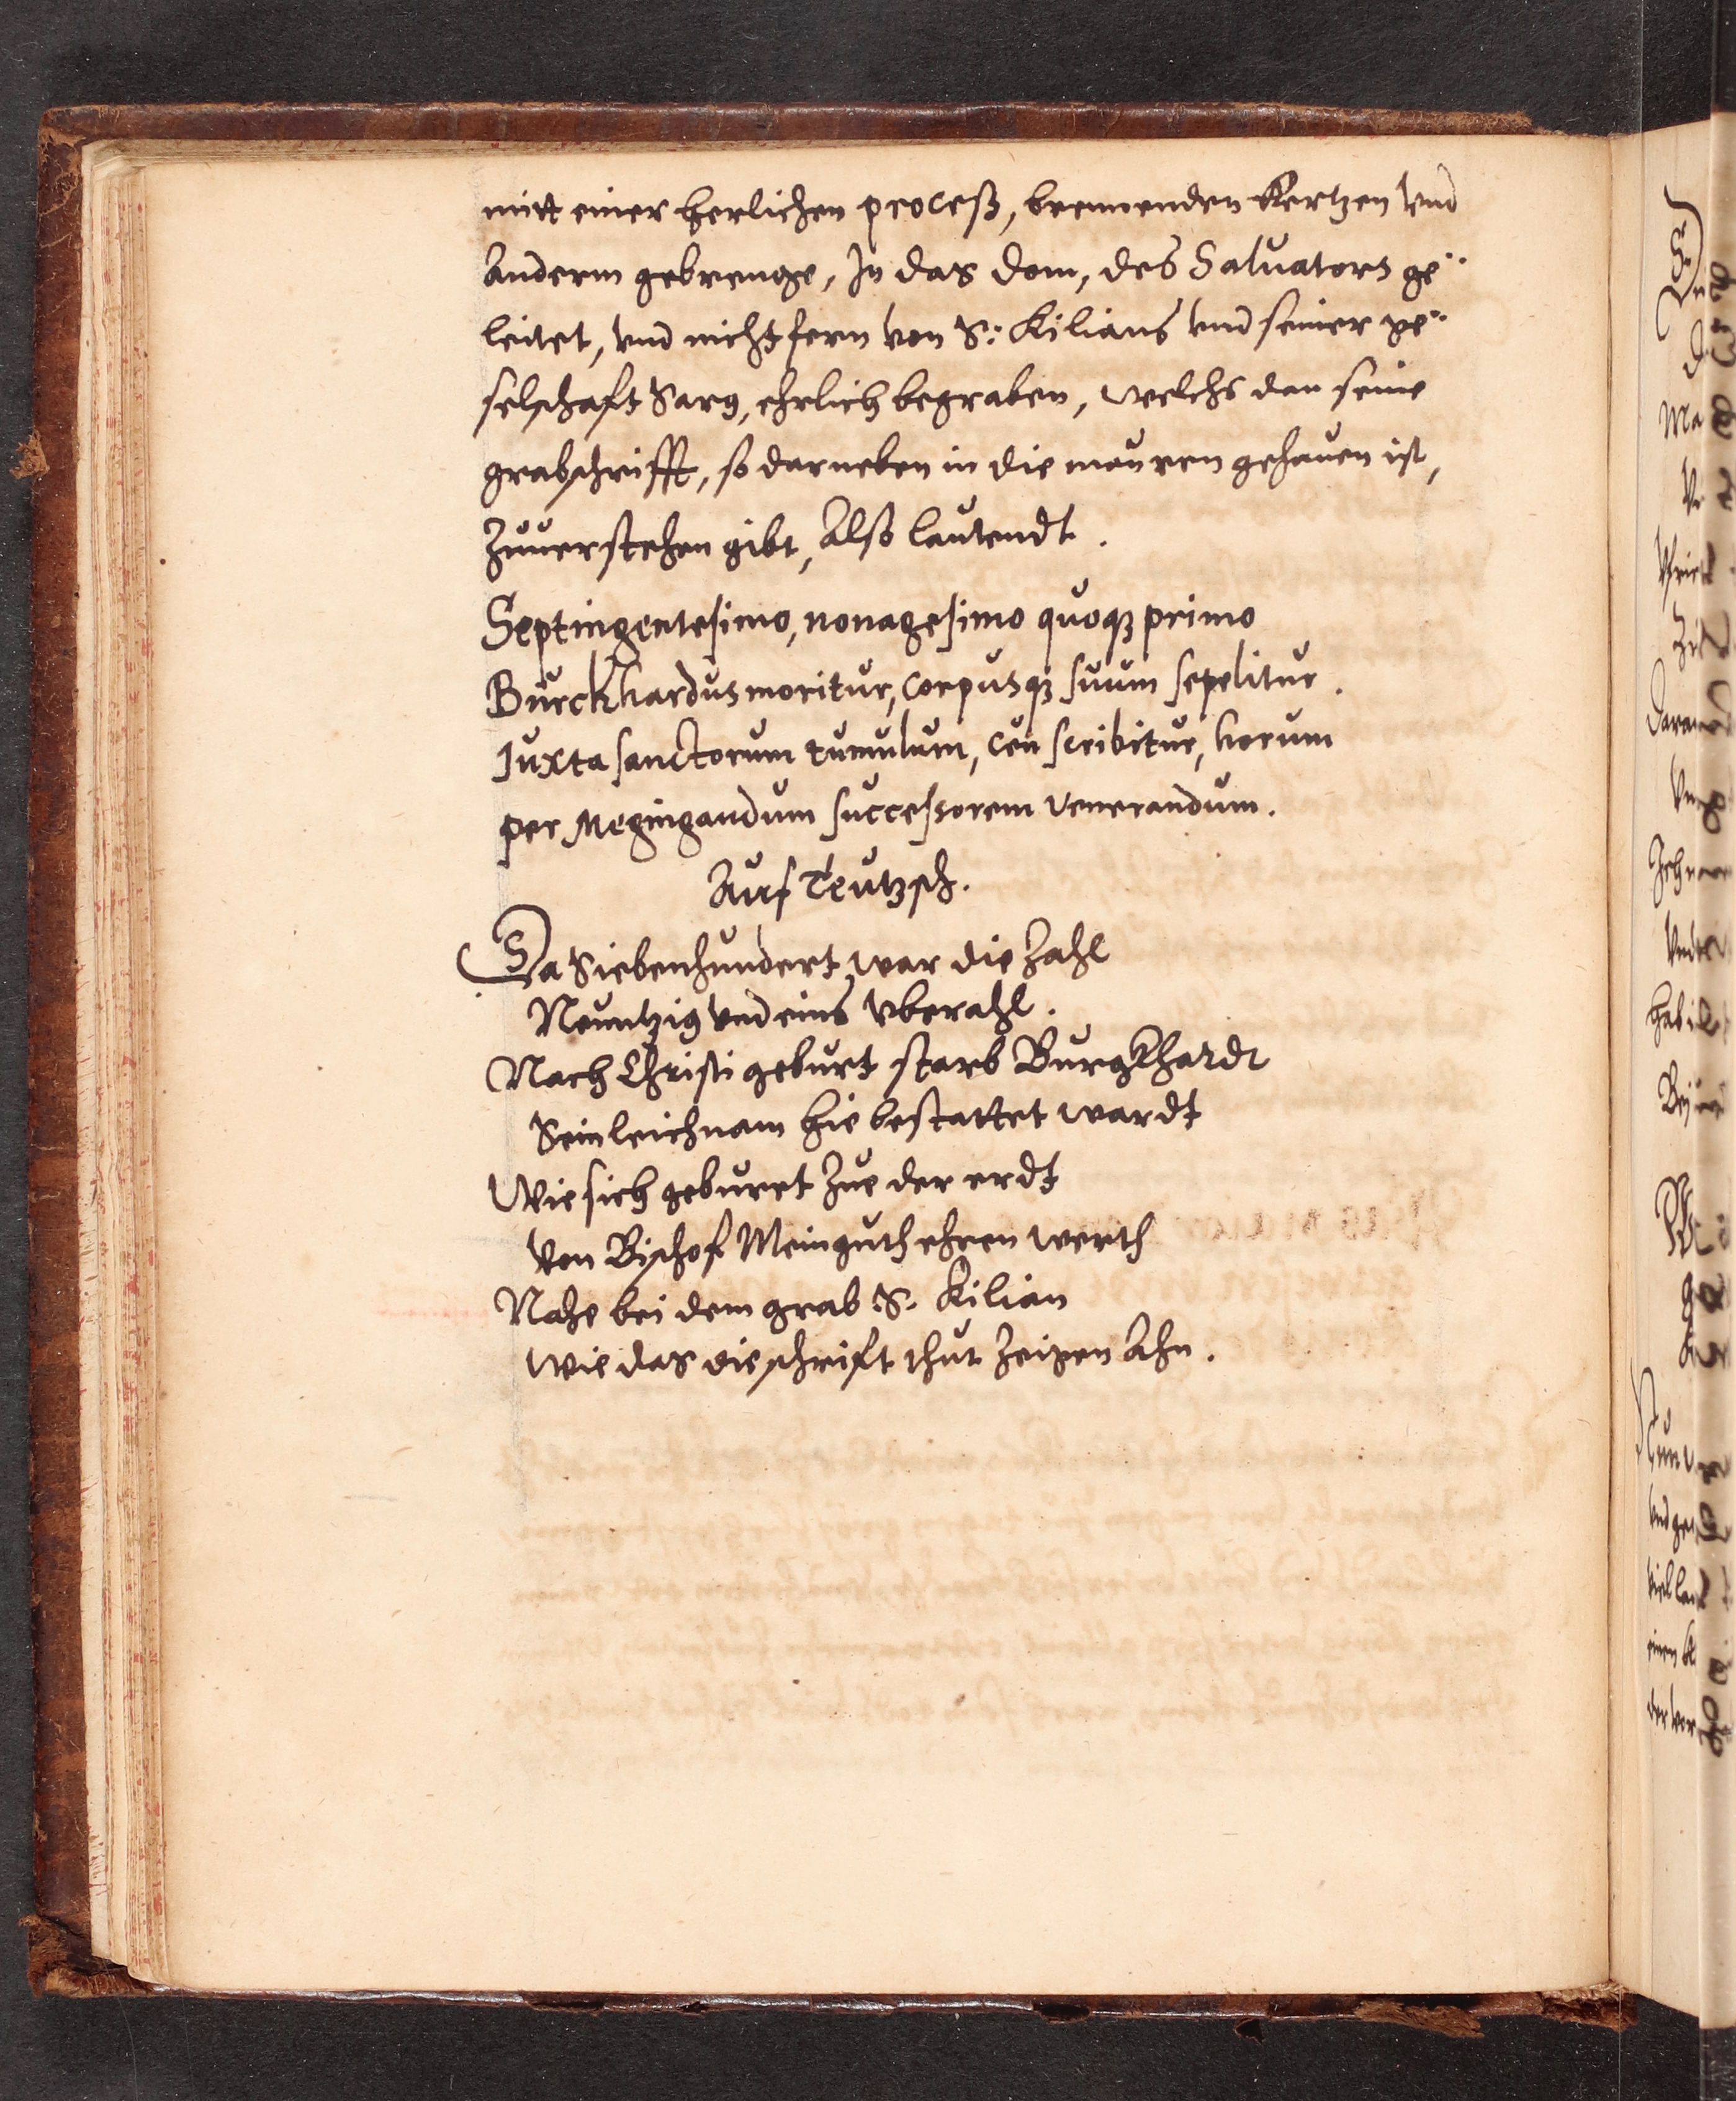 mitt einer herlichen proceß, brennenden Kertzen vnd
Anderm gebrenge, In das Dom, des Saluators ge¨
leitet, vnd nicht fern von S: Kilians vnd seiner ge¨
selschaft Sarg, ehrlich begraben, welchs dan seine
grabschrifft, so darneben in die mauren gehauen ist,
Zuuerstehen gibt, Alß lautendt.
Septingentesimo, nonagesimo quoqꝫ primo
Burckhardus moritur, corpusqꝫ suum sepelitur.
Iuxta sanctorum tumulum, ceu scribitur, horum
per Megingaudum successorem venerandum.
Auf Teutzsch.
Da Siebenhundert war die Zahl
Neuntzig vnd eins vberahl.
Nach Christi geburt starb Burgkhardt
Sein leichnam hie bestattet wardt
Wie sich geburet Zue der erdt
Von Bischof Meinguth ehren werth
Nahe bei dem grab S. Kilian
Wie das die schrift thut Zeigen Ahn.